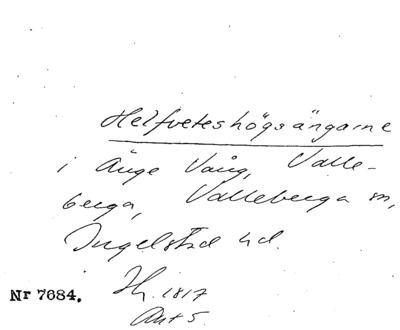 Helfveteshögsängarne
i Änge Vång, Valle-
berga, Valleberga sn,
Ingelstad hd.
Nr 7684.
Hy. 1817
Akt 5.